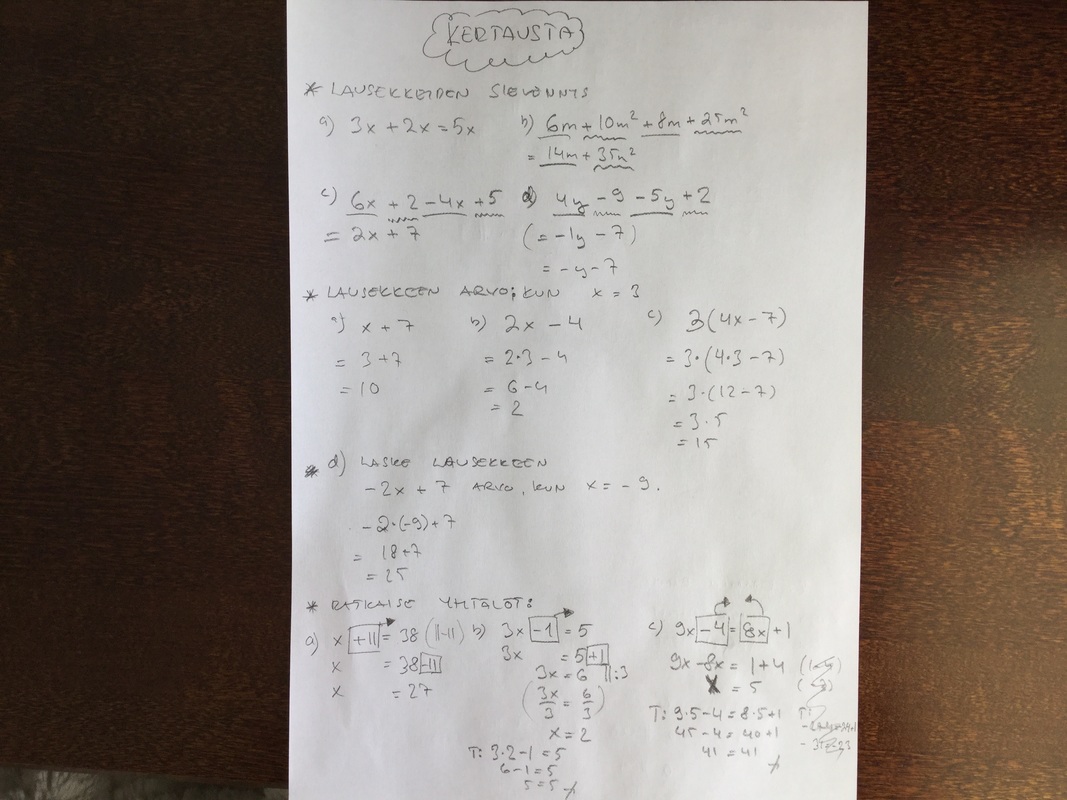 KERTAUSTA
* LAUSEKKEIDEN SIEVENNYS
a) 3x + 2x = 5x
b) 6m + 10m² + 8m + 25m²
= 14m + 35m²
c) 6x + 2 - 4x + 5
= 2x + 7
d) 4y - 9 - 5y + 2
(= -1y - 7)
= -y - 7
* LAUSEKKEEN ARVO, KUN x = 3
a) x + 7
= 3 + 7
= 10
b) 2x - 4
= 2·3 - 4
= 6 - 4
= 2
c) 3(4x - 7)
= 3·(4·3 - 7)
= 3·(12 - 7)
= 3·5
= 15
d) LASKE LAUSEKKEEN
-2x + 7 ARVO, KUN x = -9.
-2·(-9)+7
= 18+7
= 25
* RATKAISE YHTÄLÖT:
a) x +11 = 38 (||-11)
x = 38-11
x = 27
b) 3x -1 = 5
3x = 5+1
3x = 6 ||:3
(3x/3 = 6/3)
x = 2
T: 3·2-1 = 5
6-1 = 5
5 = 5
c) 9x -4 = 8x +1
9x - 8x = 1+4
x = 5
T: 9·5-4 = 8·5+1
45-4 = 40+1
41 = 41